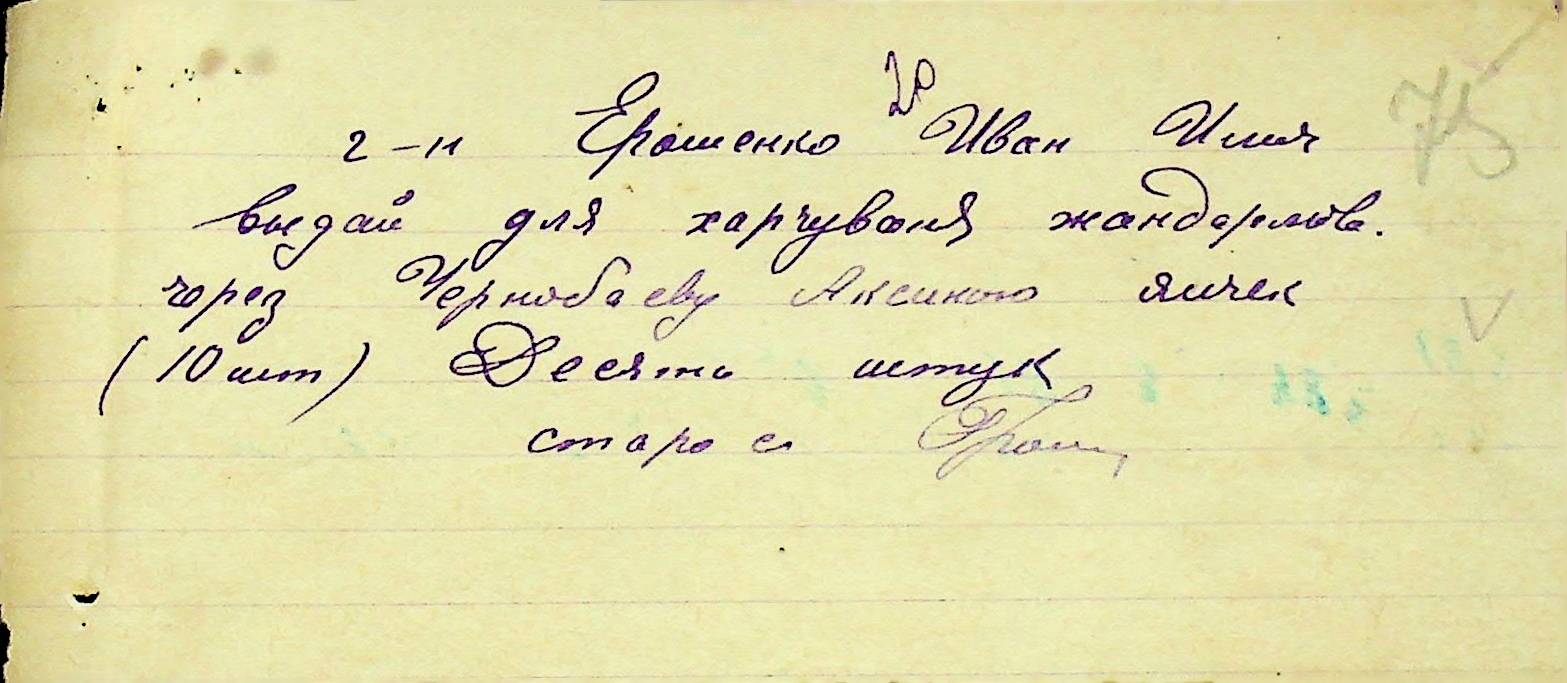 75
г-н Ерошенко Иван Илич
выдай для харчуваня жандармів.
через Чернобаеву Аксинью яичек
(10 шт) Десять штук
старо с